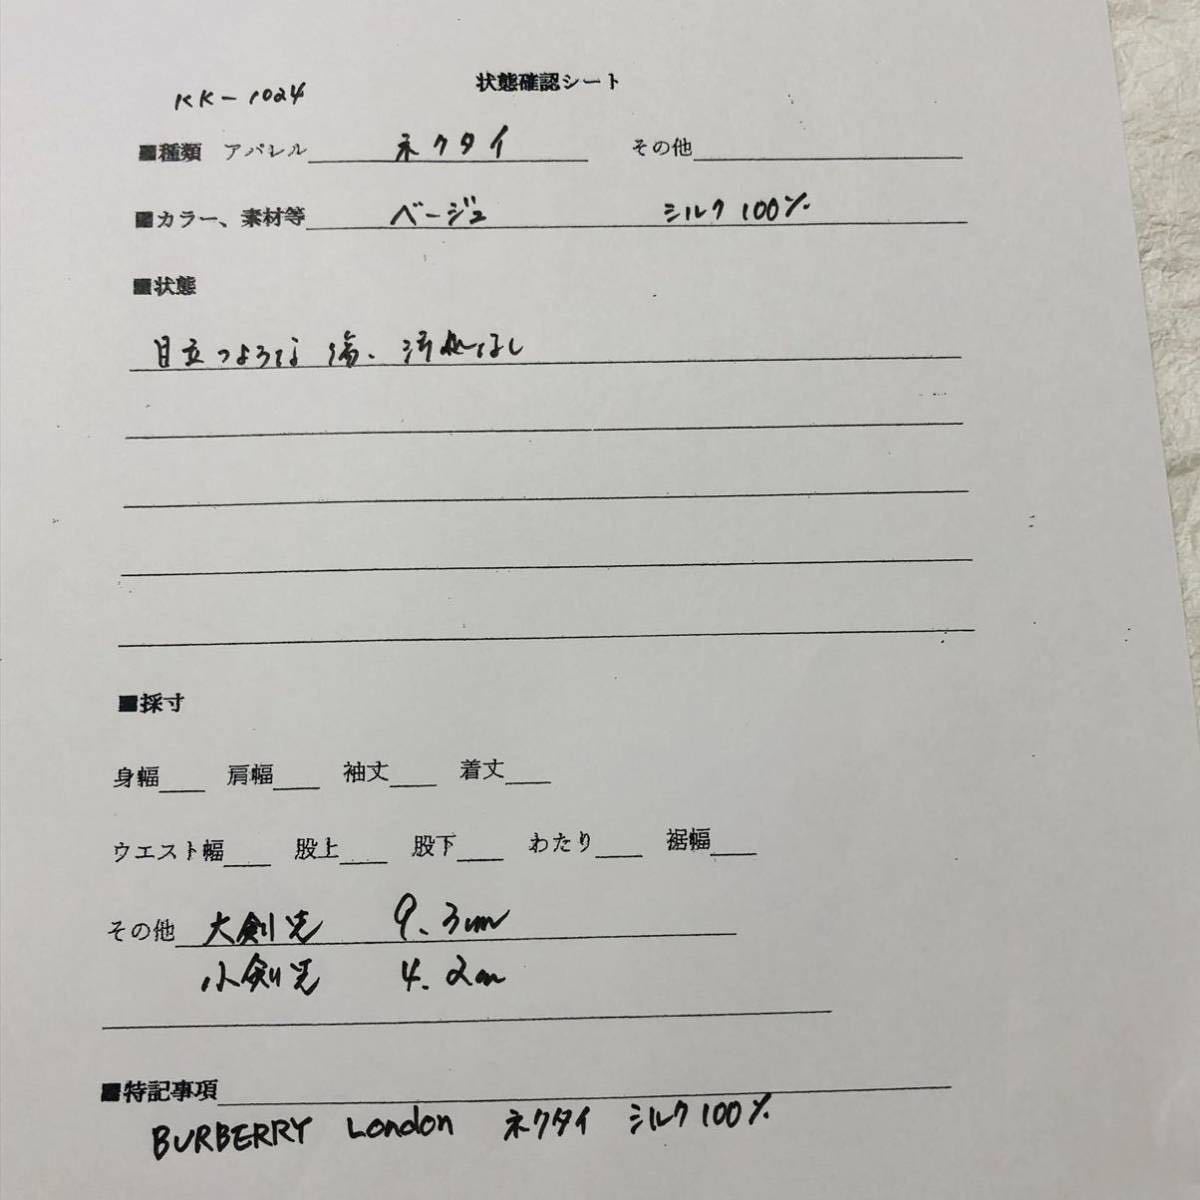 状態確認シート
KK-1024
■種類 アパレル ネクタイ その他
■カラー、素材等 ベージュ シルク100%
■状態
目立つような傷、汚れなし
■採寸
身幅 肩幅 袖丈 着丈
ウエスト幅 股上 股下 わたり 裾幅
その他 大剣先 9.3cm
小剣先 4.2cm
■特記事項
BURBERRY London ネクタイ シルク100%